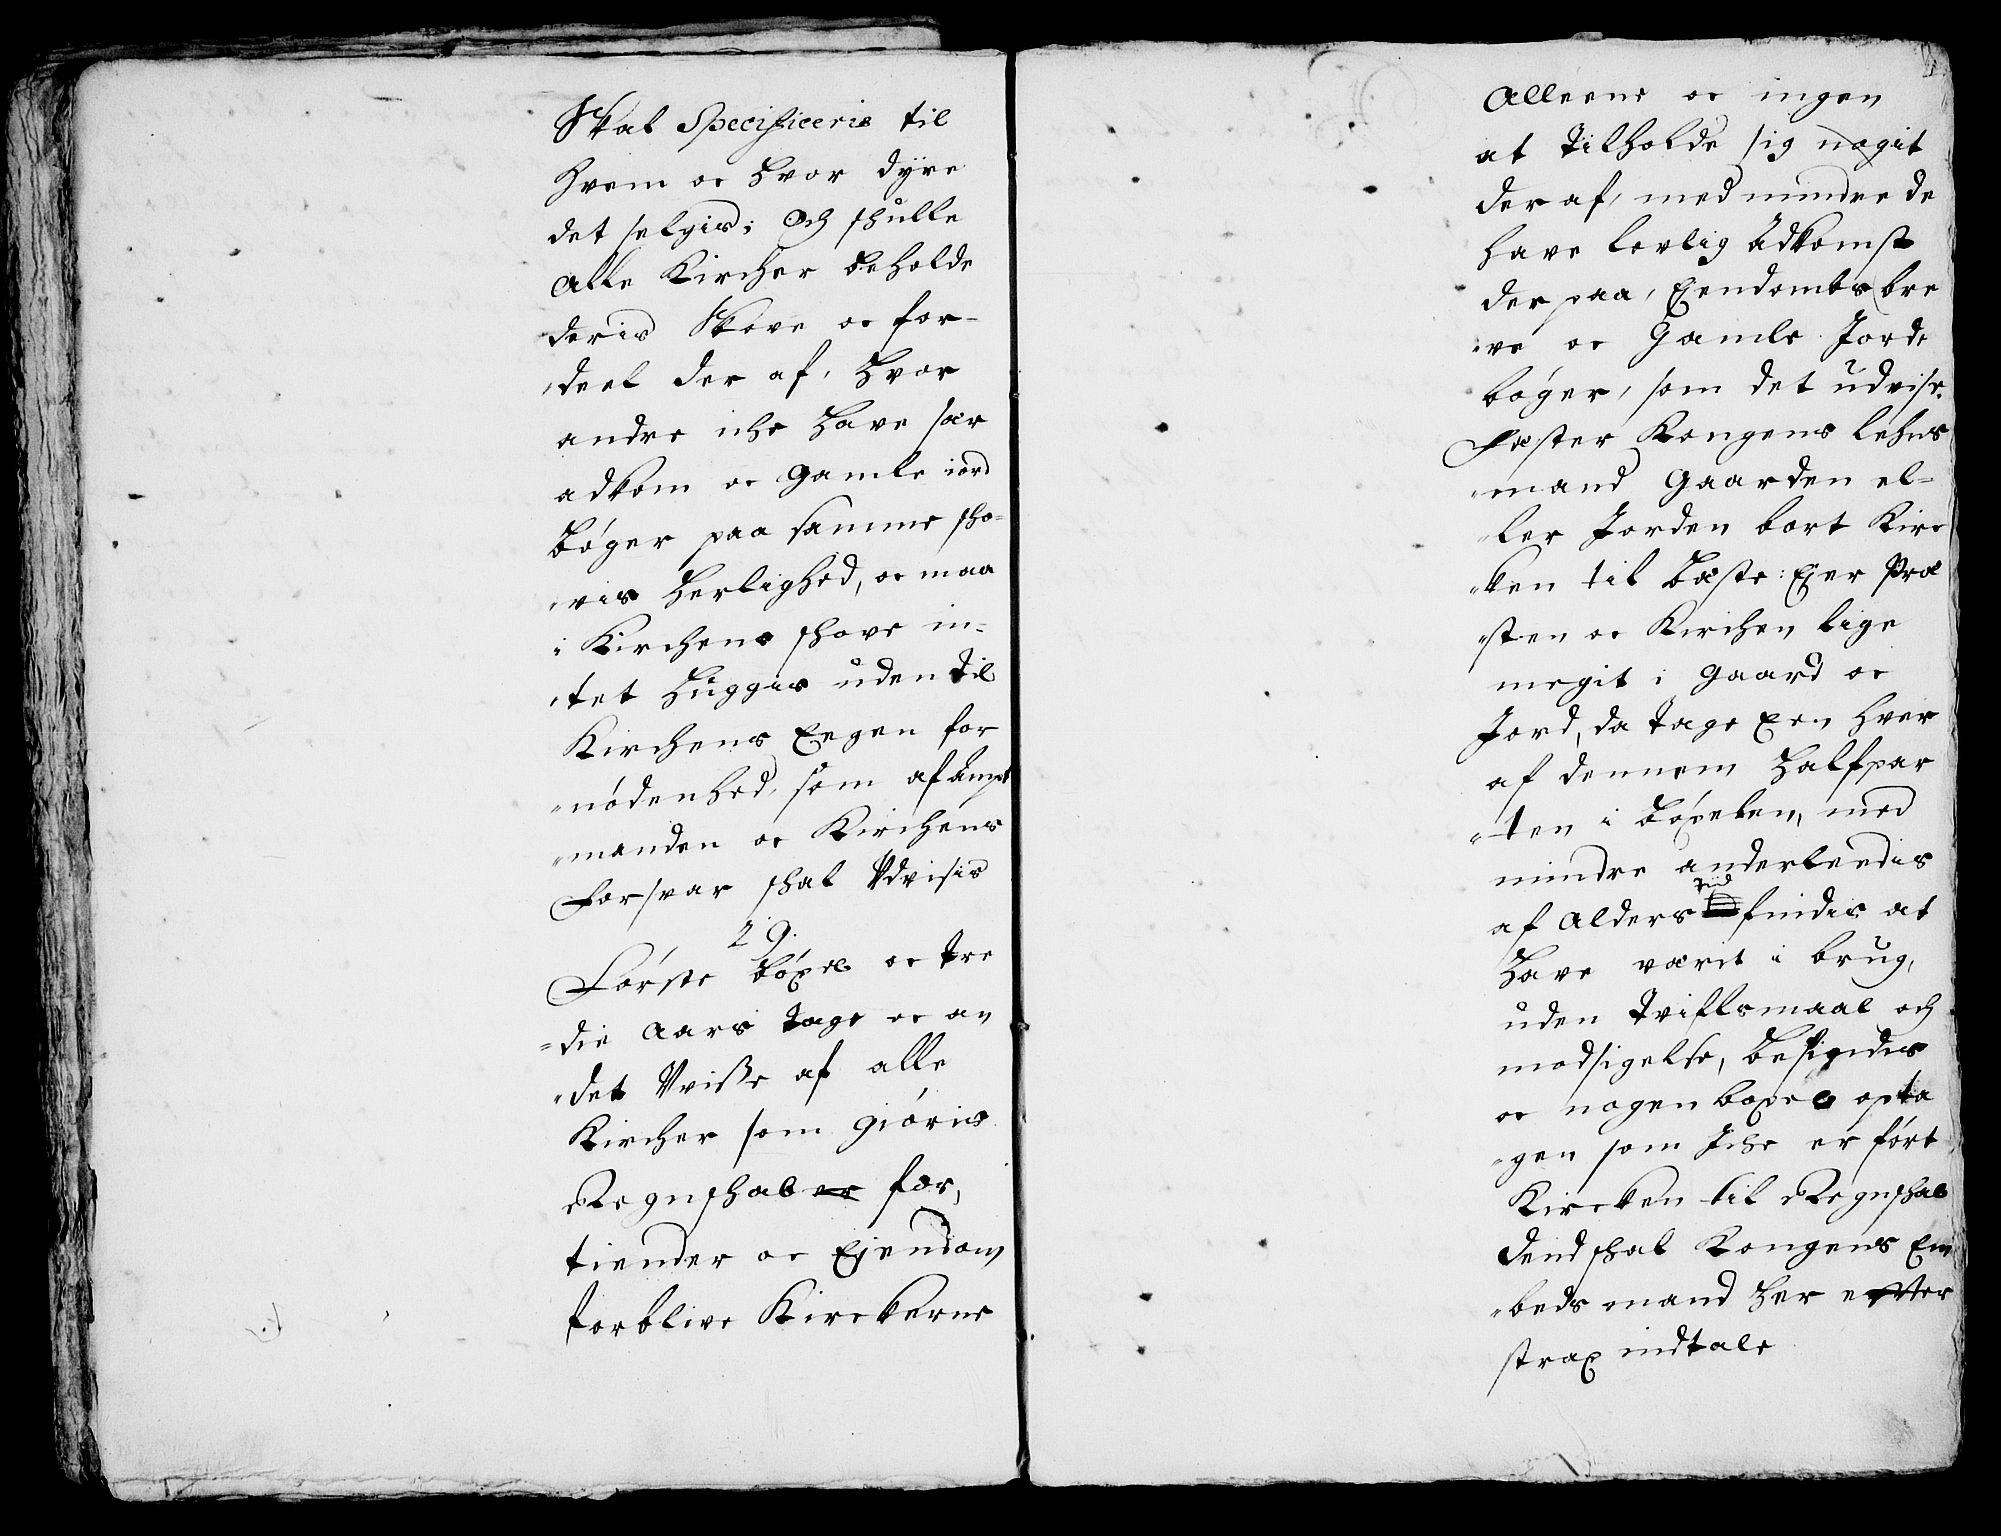 Skal Specificeris til
hvem oc hvor dÿre
det selgis; Och skulle
Alle Kircher beholde
deris Skove oc for-
deel der af, hvor
andre iche have sær
adkom oc gamle iord
bøger paa samme sko-
vis herlighed, oc maa
i Kirchens skove in-
tet huggis uden til
Kirchens Eegen for
nødenhed, som af Ampt
manden oc Kirchens
Forsvar skal Udvisis
29.
Første bøxel oc tre
die Aars tage oc an
det Uvisse af alle
Kircher som giøris
Regnskab for,
tiender oc Eyendom
forblive Kirckerne
Alleene oc ingen
at tilholde sig nogit
der af, med mindre de
have lovlig Adkomst
der paa, Eyendombs bre
ve oc Gamle Jorde
bøger, som det udvise.
Fæster Kongens lehns
mand Gaarden el-
ler Jorden bort Kirc
ken til beste: Ejer Præ
sten oc Kirchen lige
megit i gaard oc
Jord, da tage Een hver
af dennem halfpar
ten i bøxelen, med
mindre anderleedis
af Alders tiid findis at
have værit i brug,
uden tviflsmaal och
modsigelse, befindis
oc nogen boxel opta
gen som Iche er ført
Kircken til Regnskab
dend skal Kongens Em
beds mand her effter
strax indtale